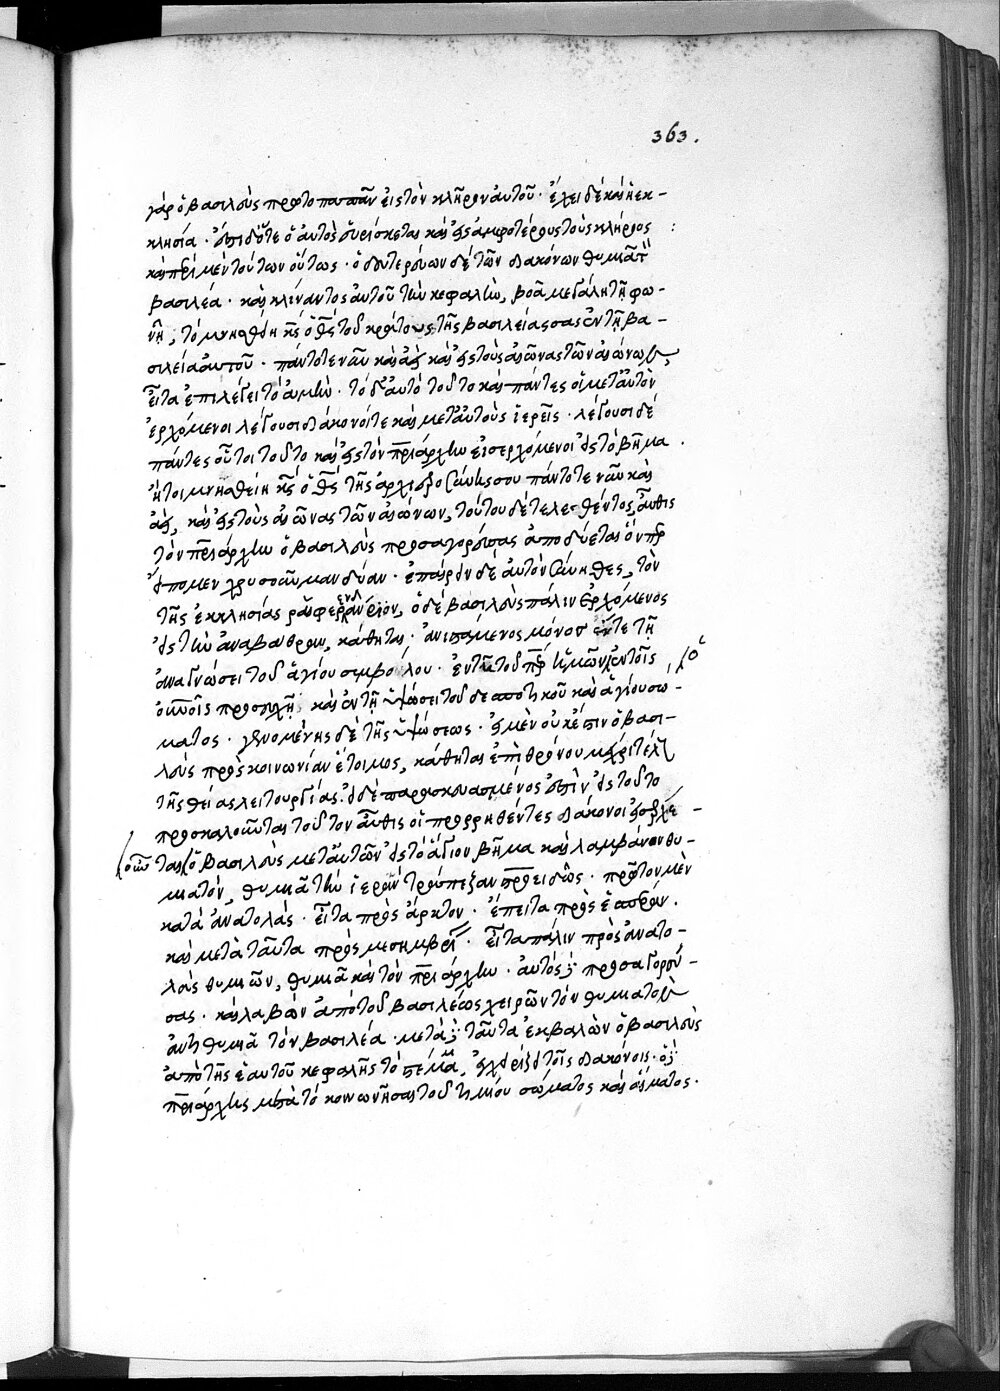 363.
γὰρ ὁ βασιλεὺς πρωτοπαπᾶν εἰς τὸν κλῆρον αὐτοῦ· ἔχει δὲ καὶ ἡ ἐκ-
κλησία· ὁ αὐτὸς εὑρίσκεται καὶ εἰς ἀμφοτέρους τοὺς κλήρους
καὶ περὶ μὲν τούτων οὕτως· ὁ δευτερεύων δὲ τῶν διακόνων θυμιᾷ τ
βασιλέα· καὶ κλίναντος αὐτοῦ τὴν κεφαλὴν, βοᾷ μεγάλη τῇ φω-
νῇ, τὸ μνησθείη κς ὁ θς τοῦ κράτους τῆς βασιλείας σας ἐν τῇ βα-
σιλείᾳ αὐτοῦ· πάντοτε νῦν καὶ ἀεὶ καὶ εἰς τοὺς αἰῶνας τῶν αἰώνων
εἶτα ἐπιλέγει τὸ ἀμήν· τὸ δ' αὐτὸ τοῦτο καὶ πάντες οἱ μετ' αὐτὸν
ἐρχόμενοι λέγουσι διάκονοί τε καὶ μετ' αὐτοὺς ἱερεῖς· λέγουσι δὲ
πάντες οὗτοι τοῦτο καὶ εἰς τὸν πριάρχην εἰσερχόμενοι εἰς τὸ βῆμα.
ἤτοι μνησθείη κς ὁ θς τῆς ἀρχιερωσύνης σου πάντοτε νῦν καὶ
ἀεὶ, καὶ εἰς τοὺς αἰῶνας τῶν αἰώνων, τούτου δὲ τελεσθέντος, αὖθις
τὸν πριάρχην ὁ βασιλεὺς προσαγορεύσας ἀποδύεται ὃν πρ
εἴπομεν χρυσοῦν μανδύαν· ἐπαίρειν δὲ αὐτὸν σύνηθες, τὸν
τῆς ἐκκλησίας ραιφερενδάριον, ὁ δὲ βασιλεὺς πάλιν ἐρχόμενος
εἰς τὴν ἀναβάθραν, κάθηται· ἀνιστάμενος μόνον ἔν τε τῇ
ἀναγνώσει τοῦ ἁγίου συμβόλου· ἐν τῷ τοῦ πρ ἡμῶν ἐν τοῖς
οὐνοῖς προσευχῇ· καὶ ἐν τῇ ὑψώσει τοῦ δεσποτικοῦ καὶ ἁγίου σώ-
ματος· γενομένης δὲ τῆς ὑψώσεως· εἰ μὲν οὐκ ἔστιν ὁ βασι-
λεὺς πρὸς κοινωνίαν ἕτοιμος, κάθηται ἐπὶ θρόνου μέχρι τέλους
τῆς θείας λειτουργίας· εἰ δὲ παρεσκευασμένος ἐστὶν εἰς τοῦτο
προσκαλοῦνται τοῦτον αὖθις οἱ προρρηθέντες διάκονοι εἰσέρχε-
ται ὁ βασιλεὺς μετ' αὐτῶν εἰς τὸ ἅγιον βῆμα καὶ λαμβάνων θυ-
μιατὸν, θυμιᾷ τὴν ἱερὰν τράπεζαν · πρῶτον μὲν
κατὰ ἀνατολάς· εἶτα πρὸς ἄρκτον· ἔπειτα πρὸς ἑσπέραν.
καὶ μετὰ ταῦτα πρὸς μεσημβρί· εἶτα πάλιν πρὸς ἀνατο-
λὰς θυμιῶν, θυμιᾷ καὶ τὸν πριάρχην· αὐτὸς δὲ προσαγορεύ-
σας· καὶ λαβὼν ἀπὸ τοῦ βασιλέως χειρῶν τὸν θυμιατὸν
ἀντιθυμιᾷ τὸν βασιλέα· μετὰ δὲ ταῦτα ἐκβαλὼν ὁ βασιλεὺς
ἀπὸ τῆς ἑαυτοῦ κεφαλῆς τὸ στέμμα, ἐγχειρίζει τοῖς διακόνοις· ὁ δὲ
πριάρχης μετὰ τὸ κοινωνῆσαι τοῦ τιμίου σώματος καὶ αἵματος.